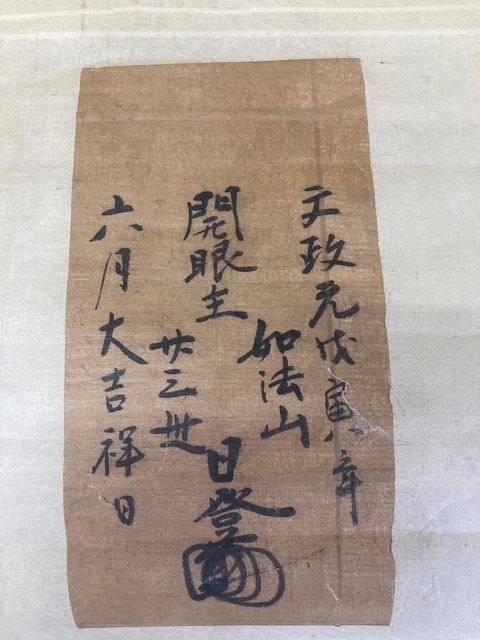 文政元戊寅八年
如法山
開眼主
廿三世
日登
六月大吉祥日